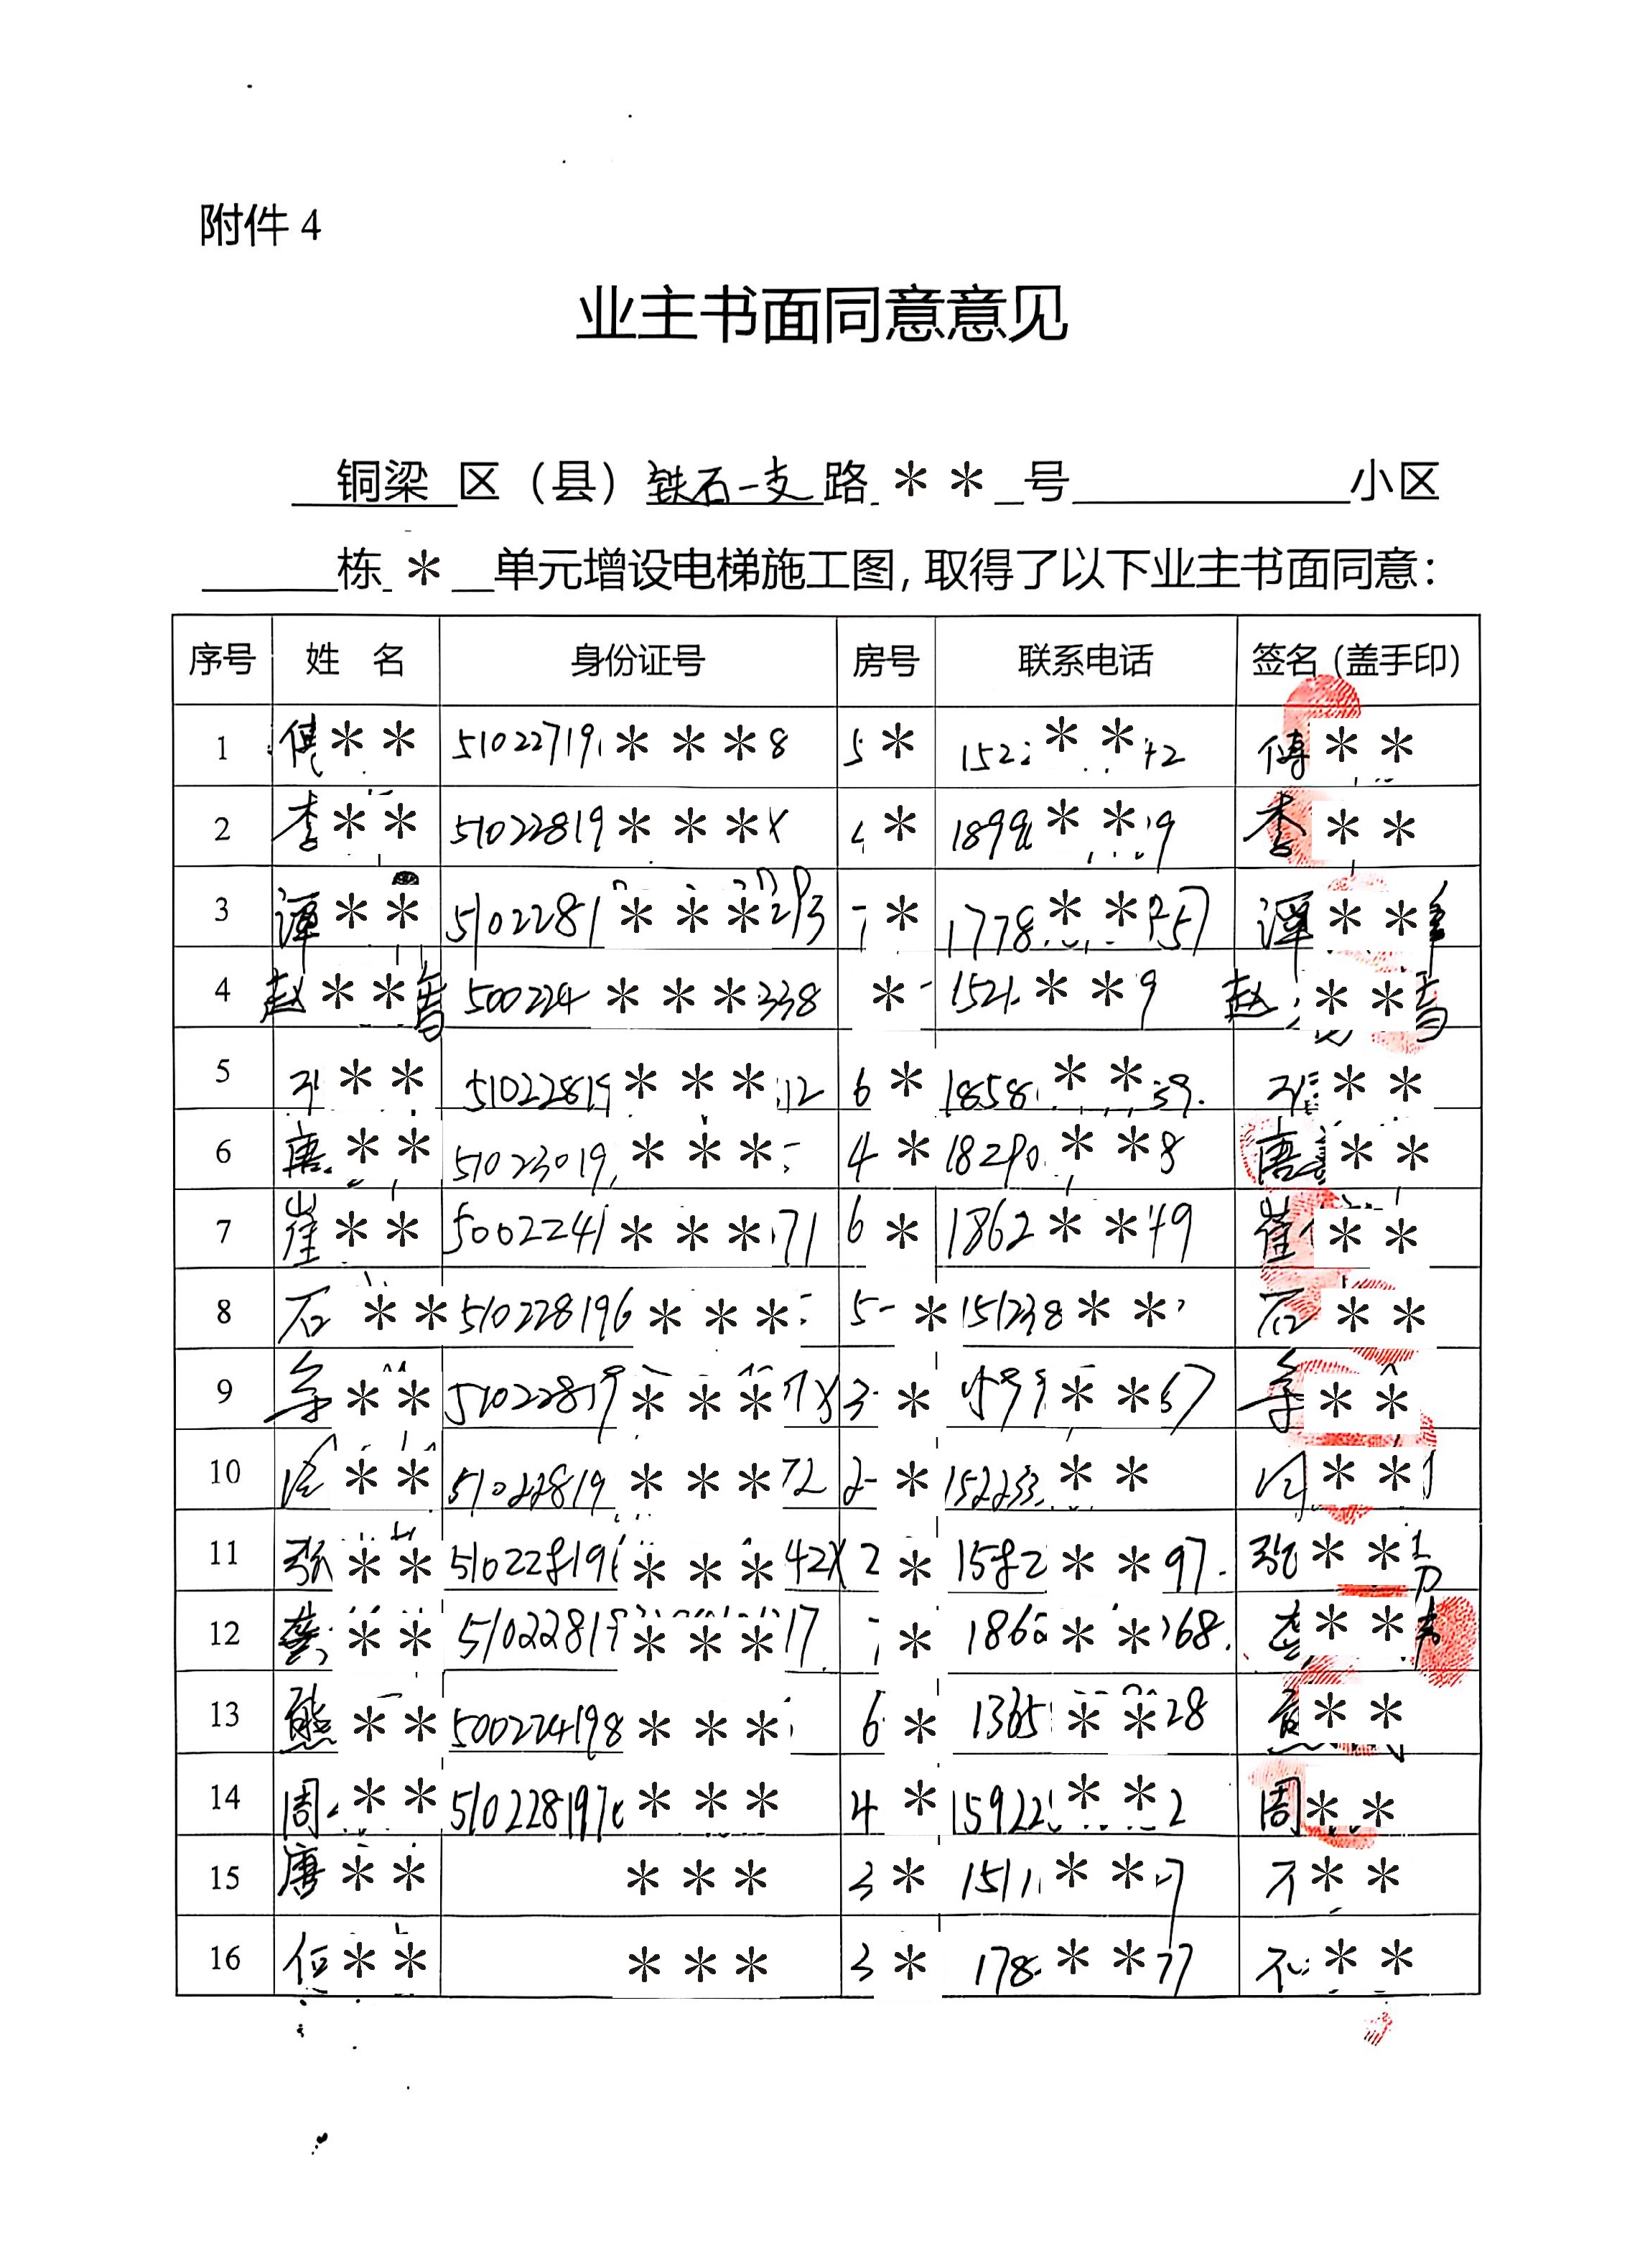 附件 4
业主书面同意意见
铜梁 区（县）铁石一支路 ＊＊ 号 小区
栋 ＊ 单元增设电梯施工图，取得了以下业主书面同意：
序号 姓 名 身份证号 房号 联系电话 签名（盖手印）
1 傅＊＊ 51022719＊＊＊8 5＊ 152＊＊42 傅＊＊
2 李＊＊ 51022819＊＊＊X ＊ 189＊＊9 李＊＊
3 谭＊＊ 5102281＊＊＊293 ＊ 1778＊＊57 谭＊＊
4 赵＊＊ 500224＊＊＊338 ＊ 152＊＊9 赵＊＊
5 ＊＊ 51022819＊＊＊12 6＊ 18580＊＊39. ＊＊
6 唐＊＊ 51023019＊＊＊ 4＊ 18290＊＊8 唐＊＊
7 崔＊＊ 5002241＊＊＊71 6＊ 1862＊＊49 崔＊＊
8 石＊＊ 510228196＊＊＊ 5-＊ 151238＊＊ 石＊＊
9 ＊＊ 51022819＊＊＊7X 3＊ ＊＊57 ＊＊
10 ＊＊ 51022819＊＊＊72 2-＊ 152233＊＊ ＊＊
11 张＊＊ 510228196＊＊＊42X 2＊ 1582＊＊97. 张＊＊
12 龚＊＊ 51022819＊＊＊17 ＊ 186＊＊68. 龚＊＊
13 熊＊＊ 500224198＊＊＊ 6＊ 1365＊＊28 ＊＊
14 周＊＊ 510228197＊＊＊ 4＊ 15922＊＊2 周＊＊
15 唐＊＊ ＊＊＊ 3＊ 1511＊＊7 不＊＊
16 任＊＊ ＊＊＊ 3＊ 178＊＊77 不＊＊